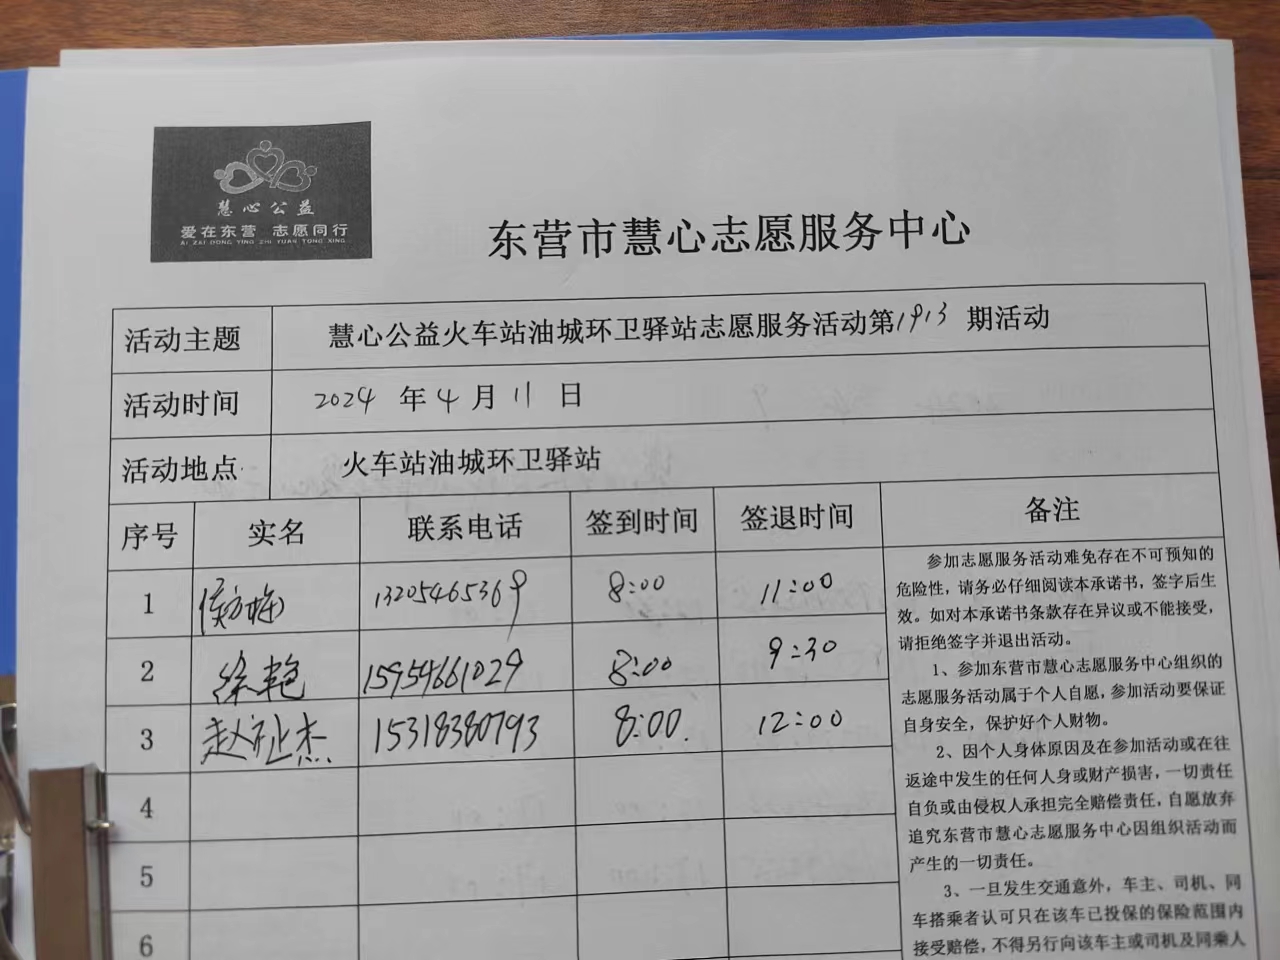 慧心公益
爱在东营 志愿同行
AI ZAI DONG YING ZHI YUAN TONG XING
东营市慧心志愿服务中心
活动主题 慧心公益火车站油城环卫驿站志愿服务活动第1913 期活动
活动时间 2024 年 4 月 11 日
活动地点 火车站油城环卫驿站
序号 实名 联系电话 签到时间 签退时间 备注
1 侯方梅 13205465369 8:00 11:00
2 徐艳 15954661029 8:00 9:30
3 赵祉杰 15318380793 8:00 12:00
4
5
6
参加志愿服务活动难免存在不可预知的
危险性，请务必仔细阅读本承诺书，签字后生
效。如对本承诺书条款存在异议或不能接受，
请拒绝签字并退出活动。
1、参加东营市慧心志愿服务中心组织的
志愿服务活动属于个人自愿，参加活动要保证
自身安全，保护好个人财物。
2、因个人身体原因及在参加活动或在往
返途中发生的任何人身或财产损害，一切责任
自负或由侵权人承担完全赔偿责任，自愿放弃
追究东营市慧心志愿服务中心因组织活动而
产生的一切责任。
3、一旦发生交通意外，车主、司机、同
车搭乘者认可只在该车已投保的保险范围内
接受赔偿，不得另行向该车主或司机及同乘人